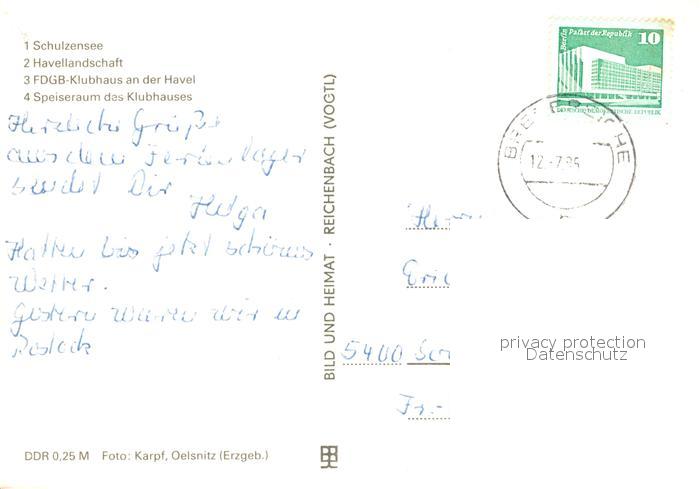 1 Schulzensee
2 Havellandschaft
3 FDGB-Klubhaus an der Havel
4 Speiseraum des Klubhauses
Herzliche Grüße
aus dem Ferienlager
sendet Dir
Helga
Hatten bis jetzt schönes
Wetter.
Gestern waren wir in
Rostock
DDR 0,25 M Foto: Karpf, Oelsnitz (Erzgeb.)
BILD UND HEIMAT · REICHENBACH (VOGTL)
Berlin Palast der Republik
10
DEUTSCHE DEMOKRATISCHE REPUBLIK
12.-7.85
Herrn
Eric
5400 So
Fr.-
privacy protection
Datenschutz